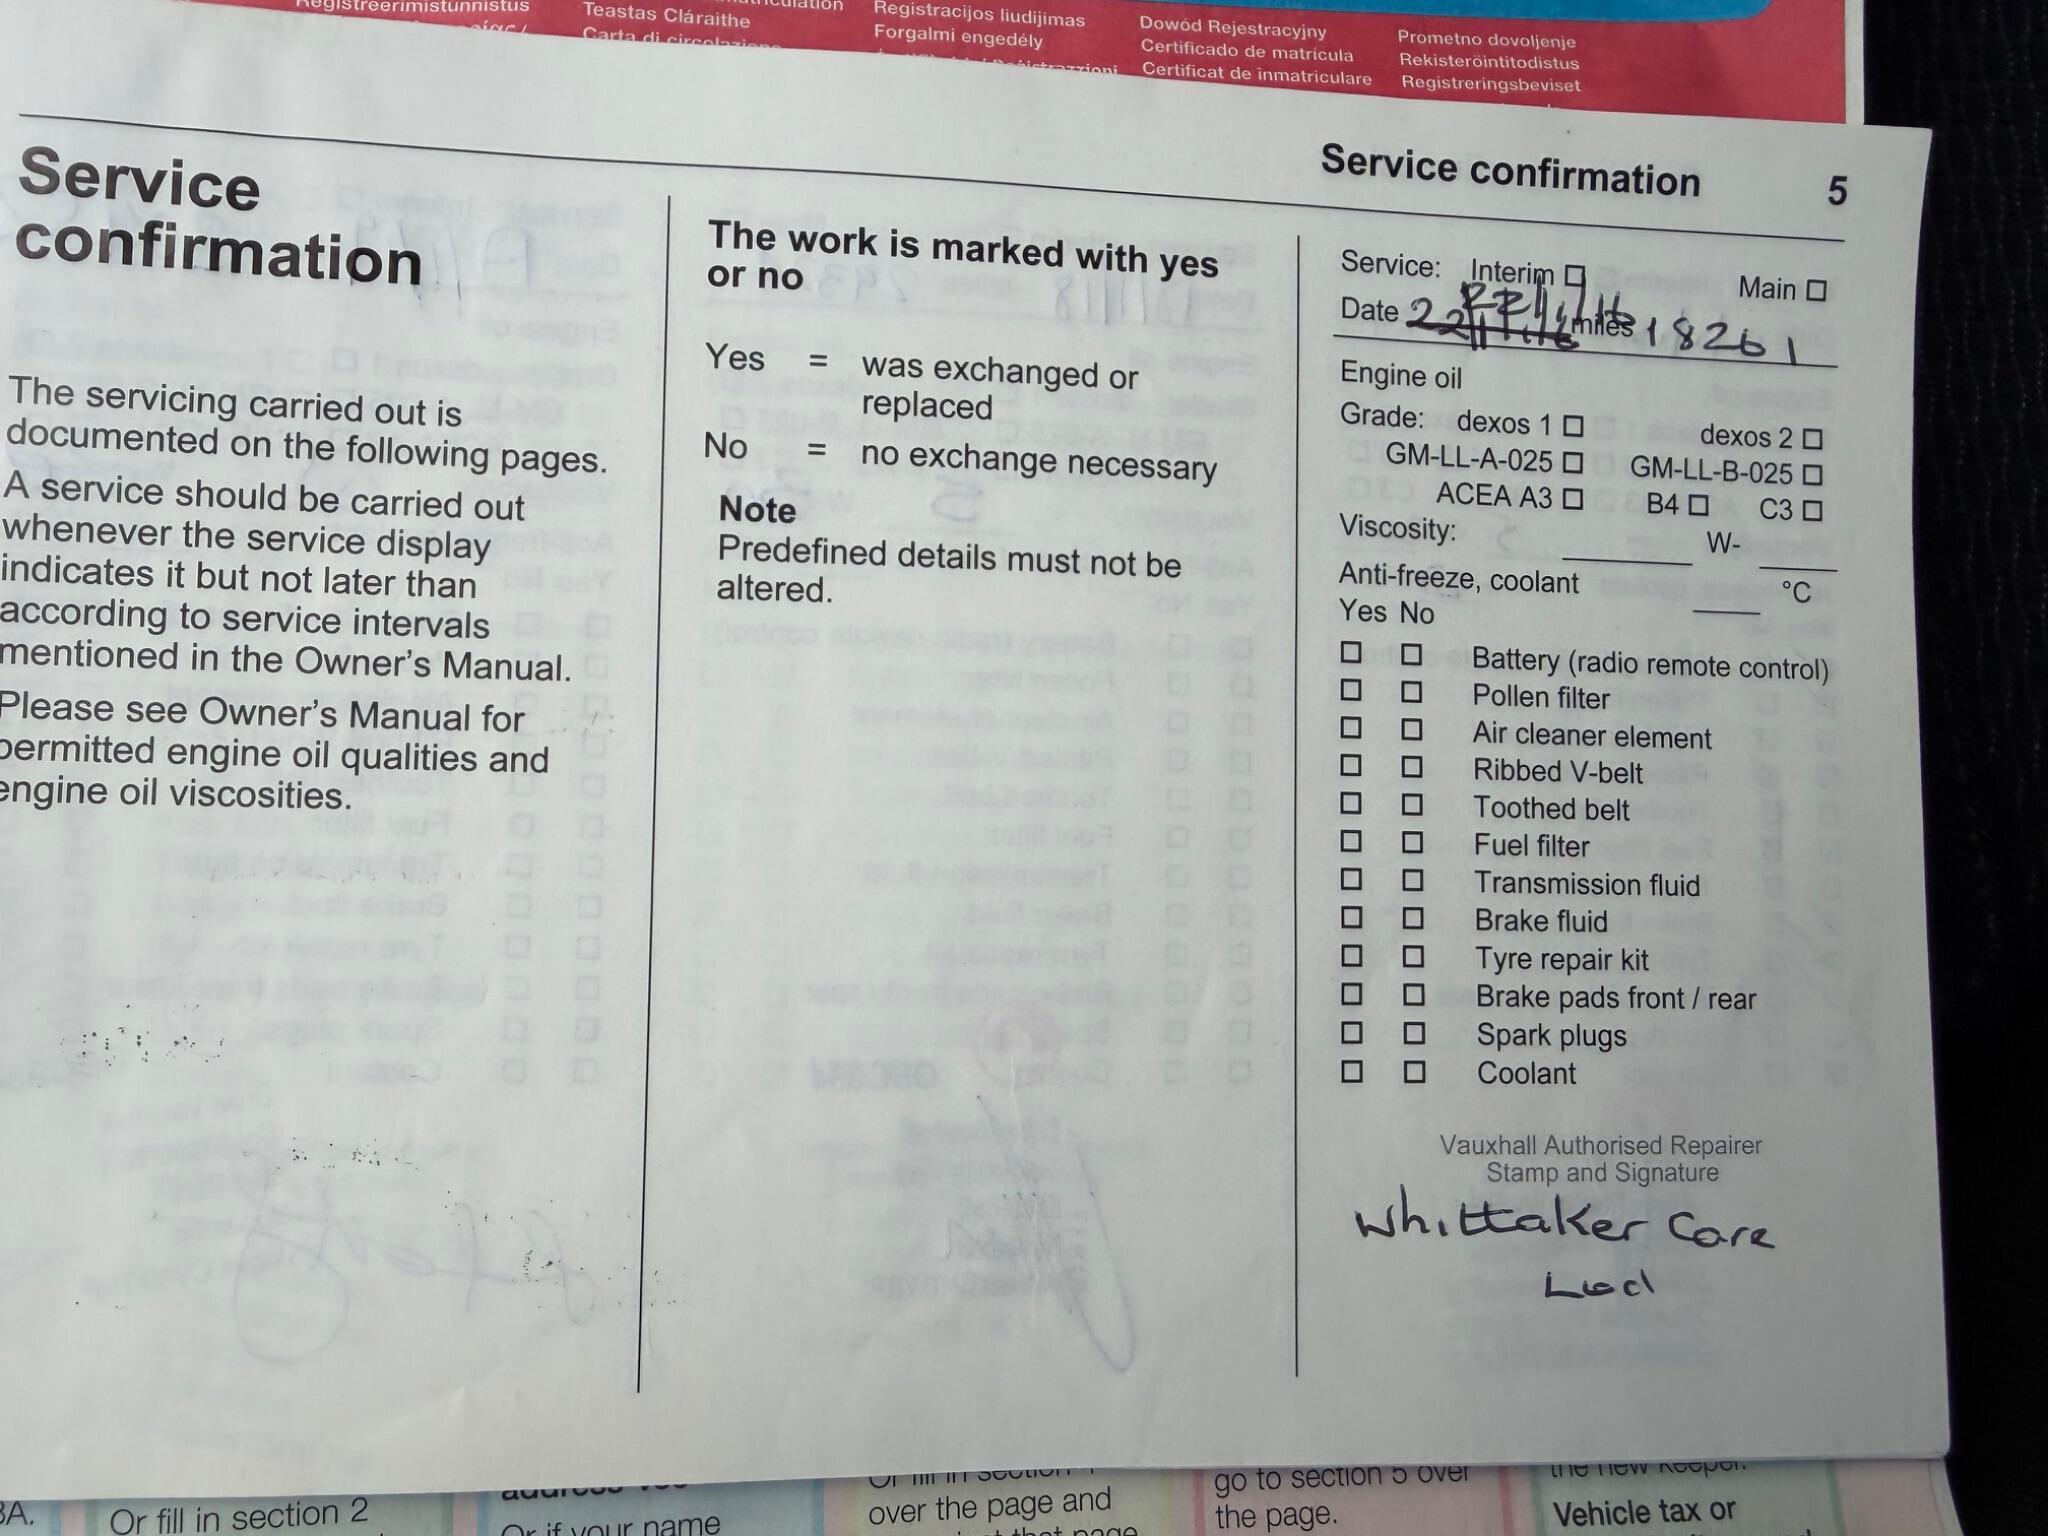 Registreerimistunnistus
Teastas Cláraithe
Registracijos liudijimas
Forgalmi engedély
Dowód Rejestracyjny
Certificado de matrícula
Certificat de înmatriculare
Prometno dovoljenje
Rekisteröintitodistus
Registreringsbeviset
Service confirmation 5
Service
confirmation
The servicing carried out is
documented on the following pages.
A service should be carried out
whenever the service display
indicates it but not later than
according to service intervals
mentioned in the Owner's Manual.
Please see Owner's Manual for
permitted engine oil qualities and
engine oil viscosities.
The work is marked with yes
or no
Yes = was exchanged or
replaced
No = no exchange necessary
Note
Predefined details must not be
altered.
Service: Interim Main
Date 22/11/16 miles 18261
Engine oil
Grade: dexos 1 dexos 2
GM-LL-A-025 GM-LL-B-025
ACEA A3 B4 C3
Viscosity: W-
Anti-freeze, coolant °C
Yes No
Battery (radio remote control)
Pollen filter
Air cleaner element
Ribbed V-belt
Toothed belt
Fuel filter
Transmission fluid
Brake fluid
Tyre repair kit
Brake pads front / rear
Spark plugs
Coolant
Vauxhall Authorised Repairer
Stamp and Signature
Whittaker Care
Or fill in section 2
Or if your name
over the page and
go to section 5 over
the page.
the new keeper.
Vehicle tax or